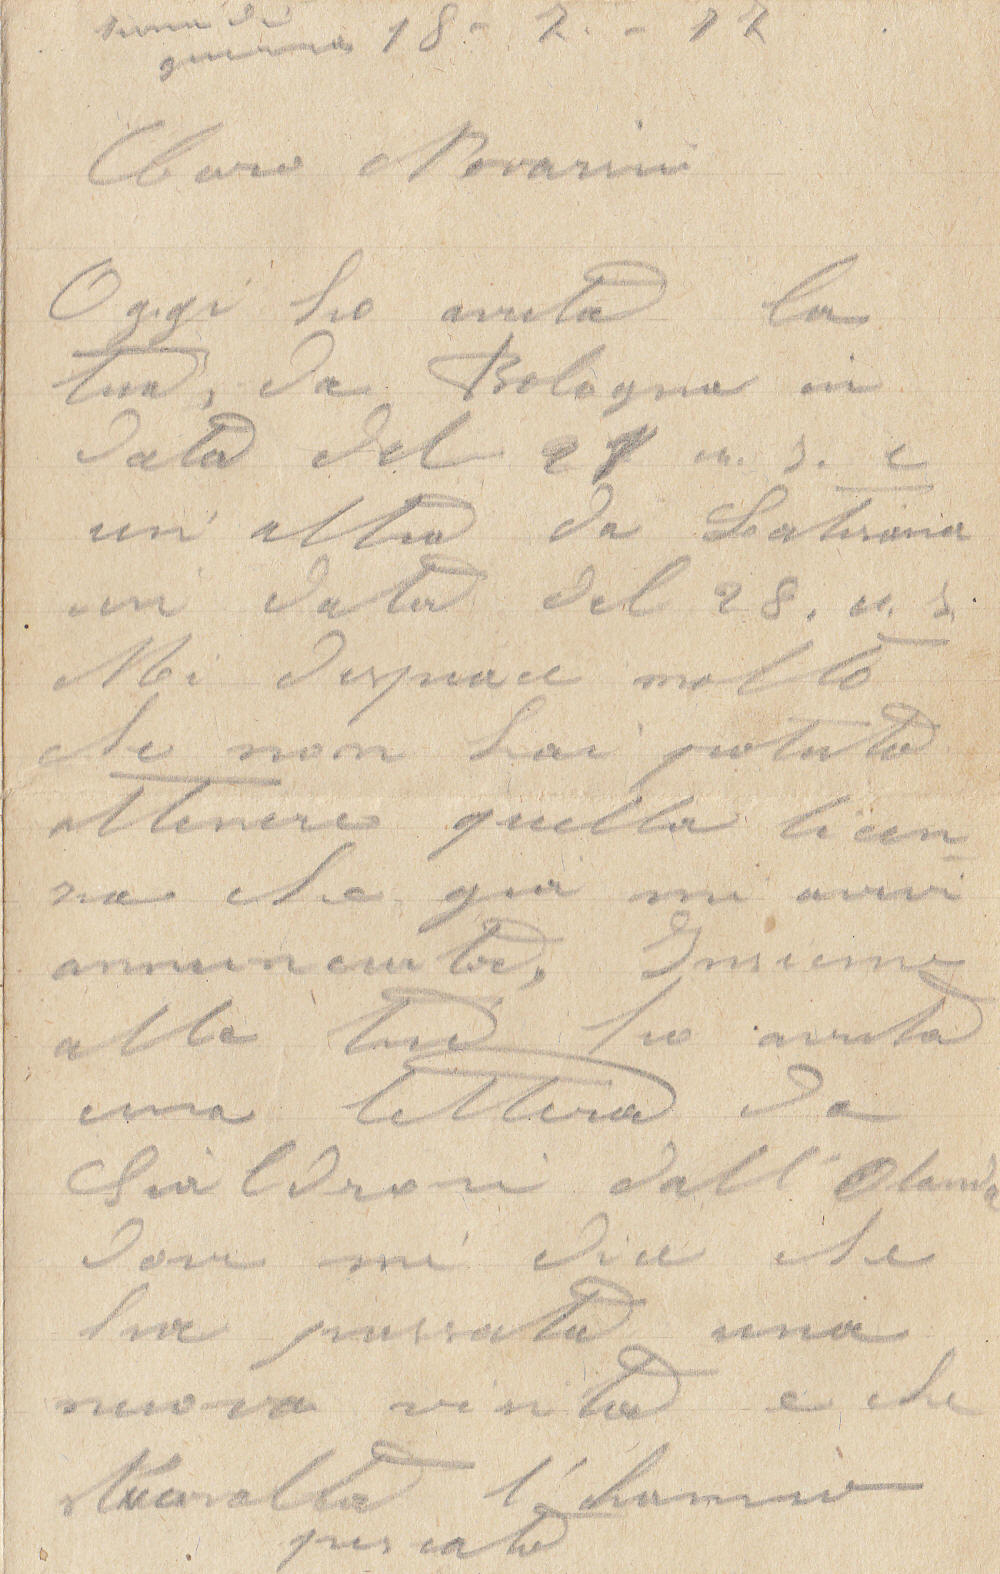 zona di
guerra 18-2.-17
Caro Novarini
Oggi ho avuta la
tua, da Bologna in
data del 27 u. s. e
un'altra da Laterina
in data del 28. u. s.
Mi dispiace molto
che non hai potuto
ottenere quella licen-
za che già mi avevi
annunciata, Insieme
alle tue ho avuta
una lettera da
Gialdroni dall'Olanda
dove mi dice che
ha passata una
nuova visita e che
l'hanno
pescato